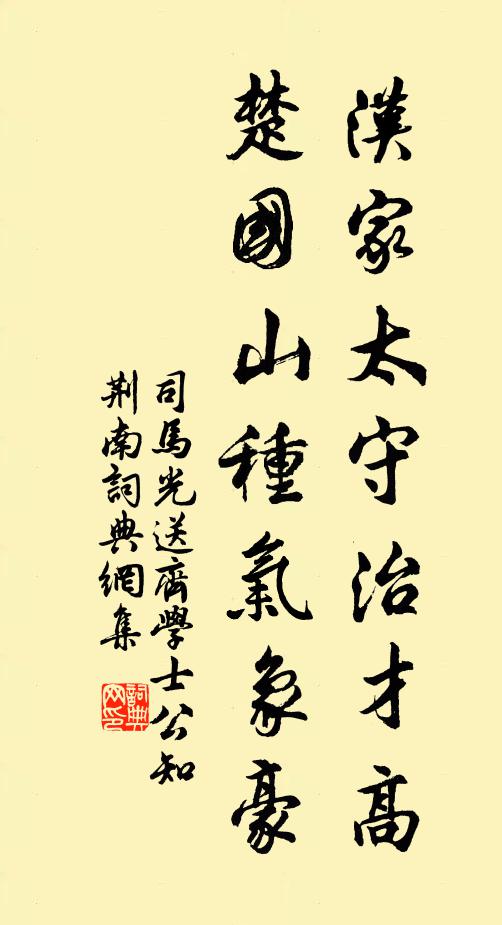 漢家太守治才高
楚國山種氣象豪
司馬光送齊學士公知
荆南詞典網集
詞典网印